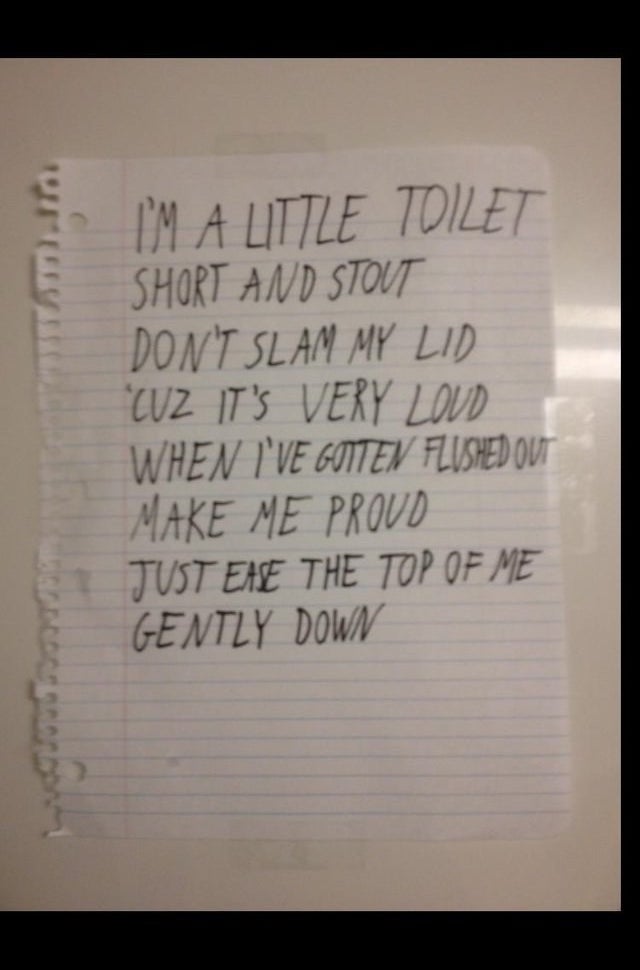 I'M A LITTLE TOILET
SHORT AND STOUT
DON'T SLAM MY LID
'CUZ IT'S VERY LOUD
WHEN I'VE GOTTEN FLUSHED OUT
MAKE ME PROUD
JUST EASE THE TOP OF ME
GENTLY DOWN